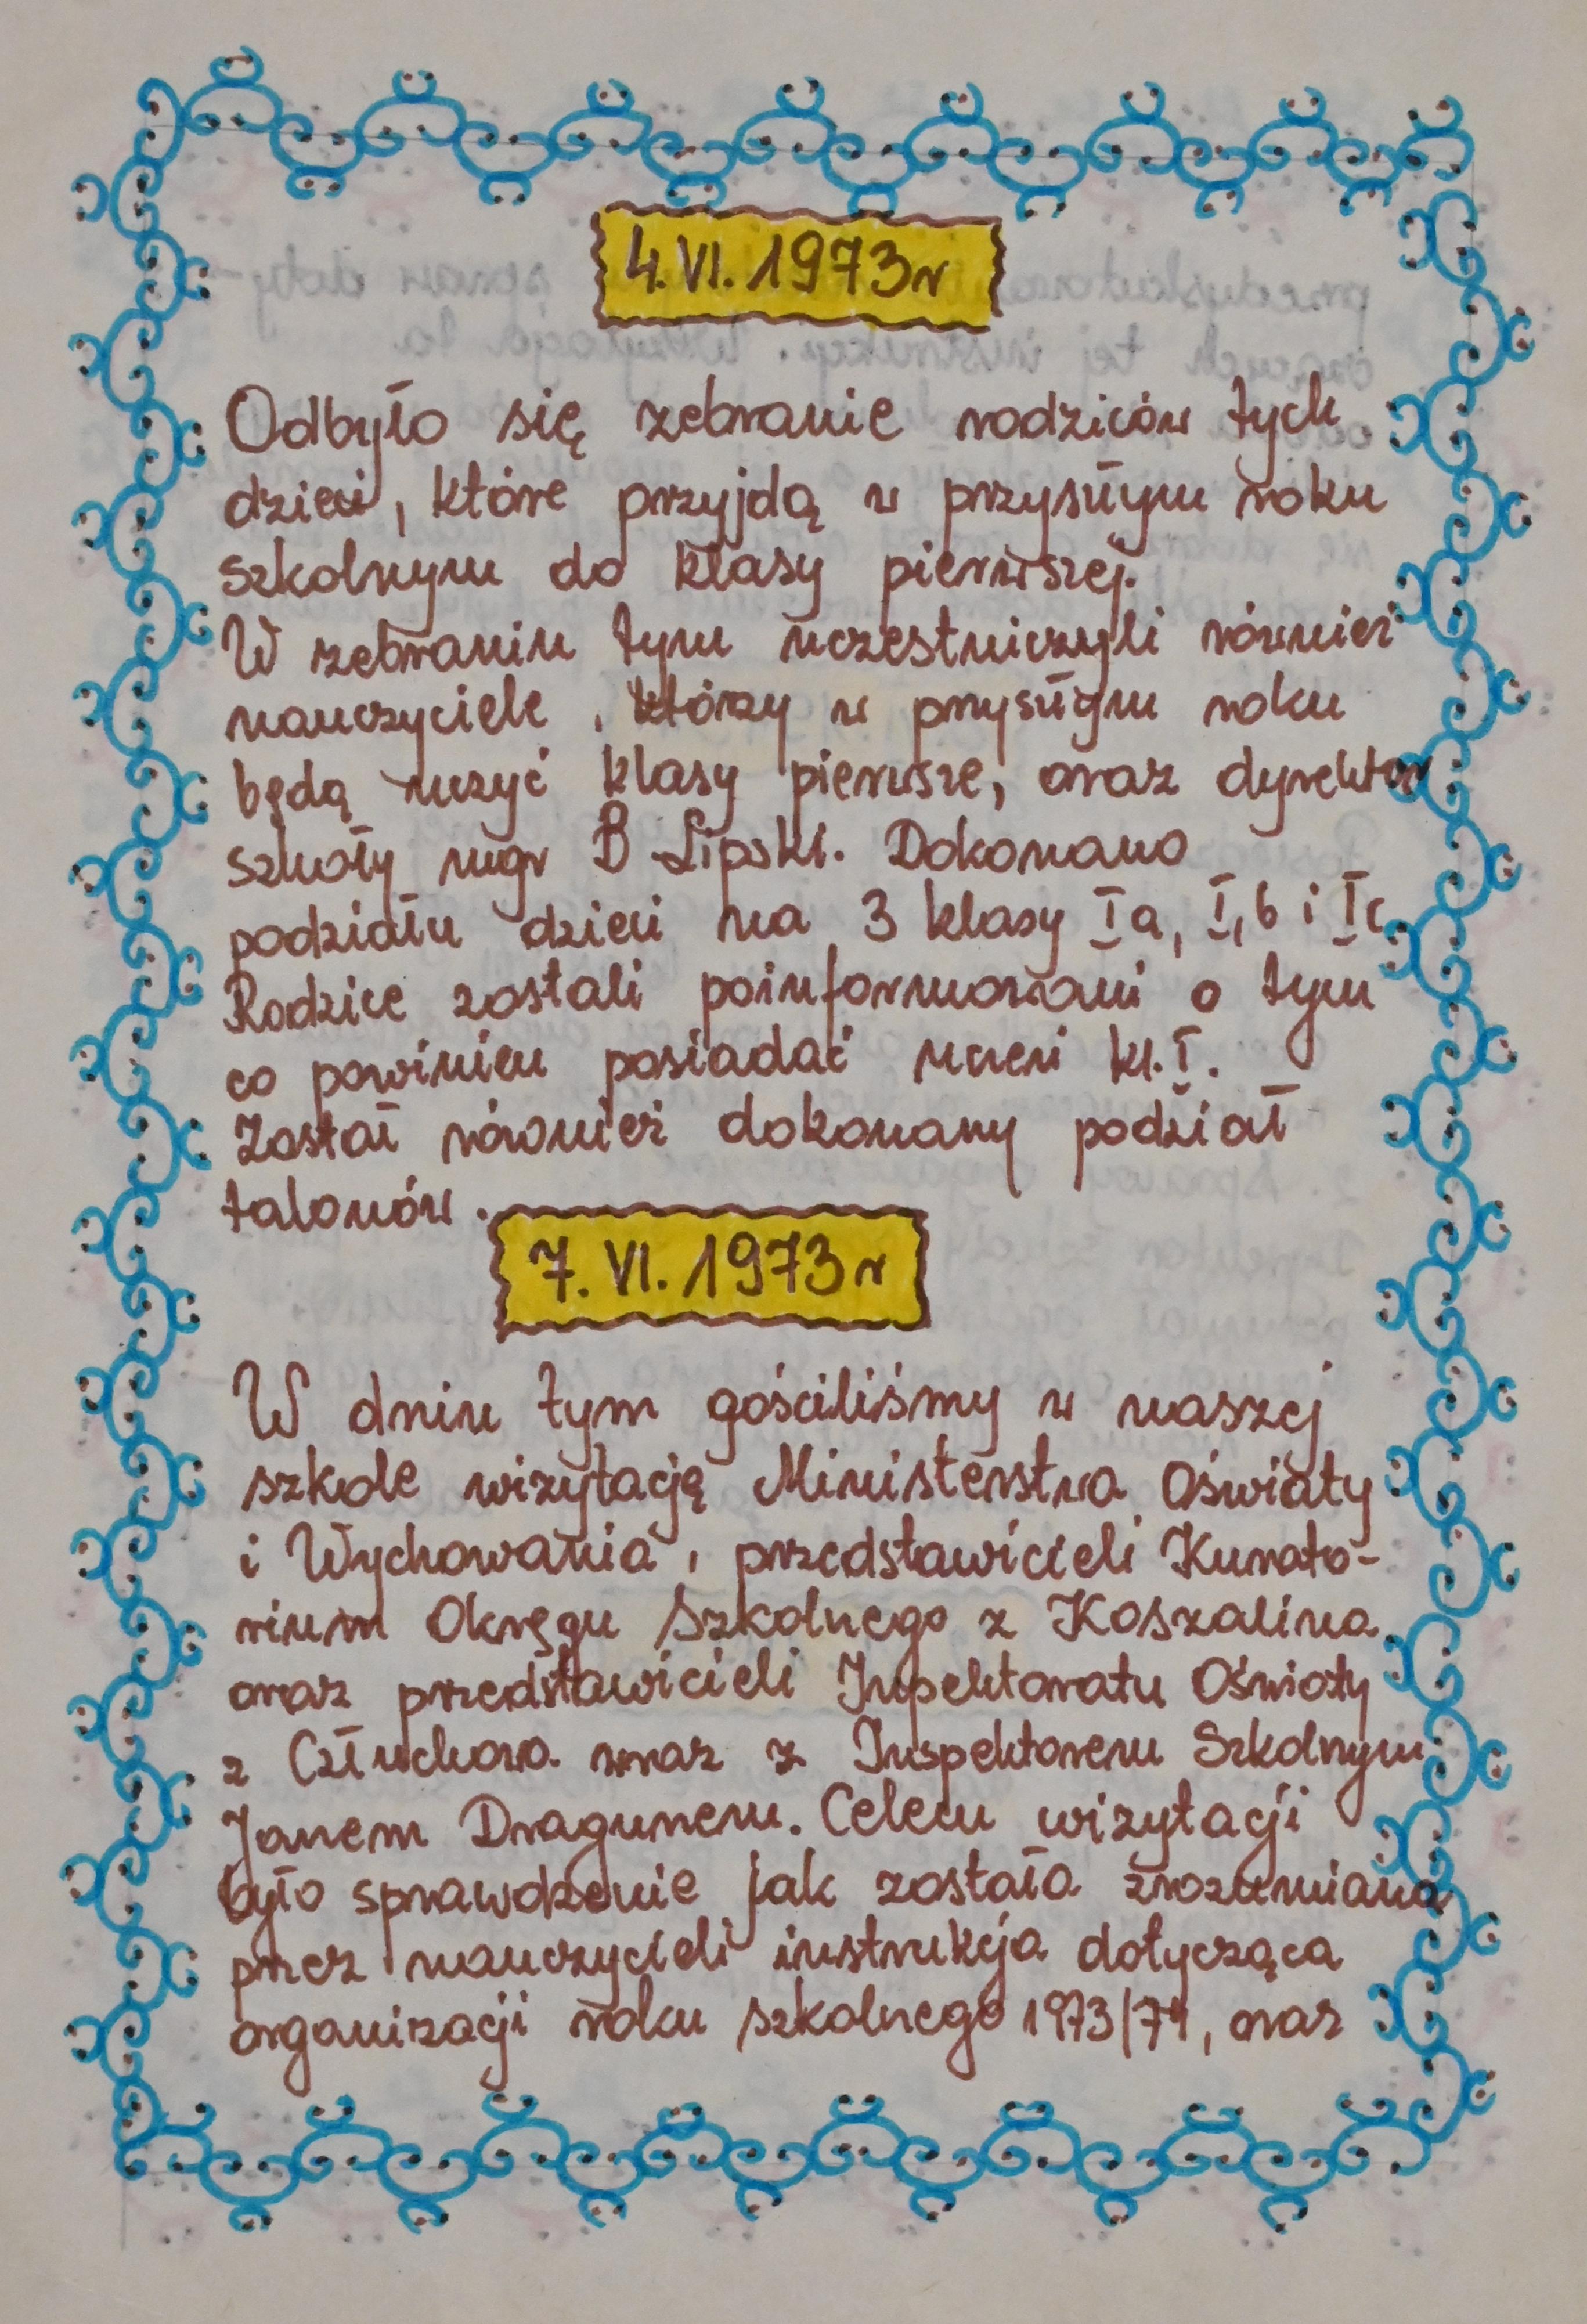 4.VI.1973r
Odbyło się zebranie rodziców tych
dzieci, które przyjdą w przyszłym roku
szkolnym do klasy pierwszej.
W zebraniu tym uczestniczyli również
nauczyciele, którzy w przyszłym roku
będą uczyć klasy pierwsze, oraz dyrektor
szkoły mgr B Lipski. Dokonano
podziału dzieci na 3 klasy Ia, I,b i Ic
Rodzice zostali poinformowani o tym
co powinien posiadać uczeń kl. I.
Został również dokonany podział
talonów.
7.VI.1973r
W dniu tym gościliśmy w naszej
szkole wizytację Ministerstwa Oświaty
i Wychowania, przedstawicieli Kurato-
rium Okręgu Szkolnego z Koszalina
oraz przedstawicieli Inpektoratu Oświaty
z Człuchowa wraz z Inspektorem Szkolnym
Janem Dragunem. Celem wizytacji
było sprawdzenie jak została zrozumiana
przez nauczycieli instrukcja dotycząca
organizacji roku szkolnego 1973/74, oraz